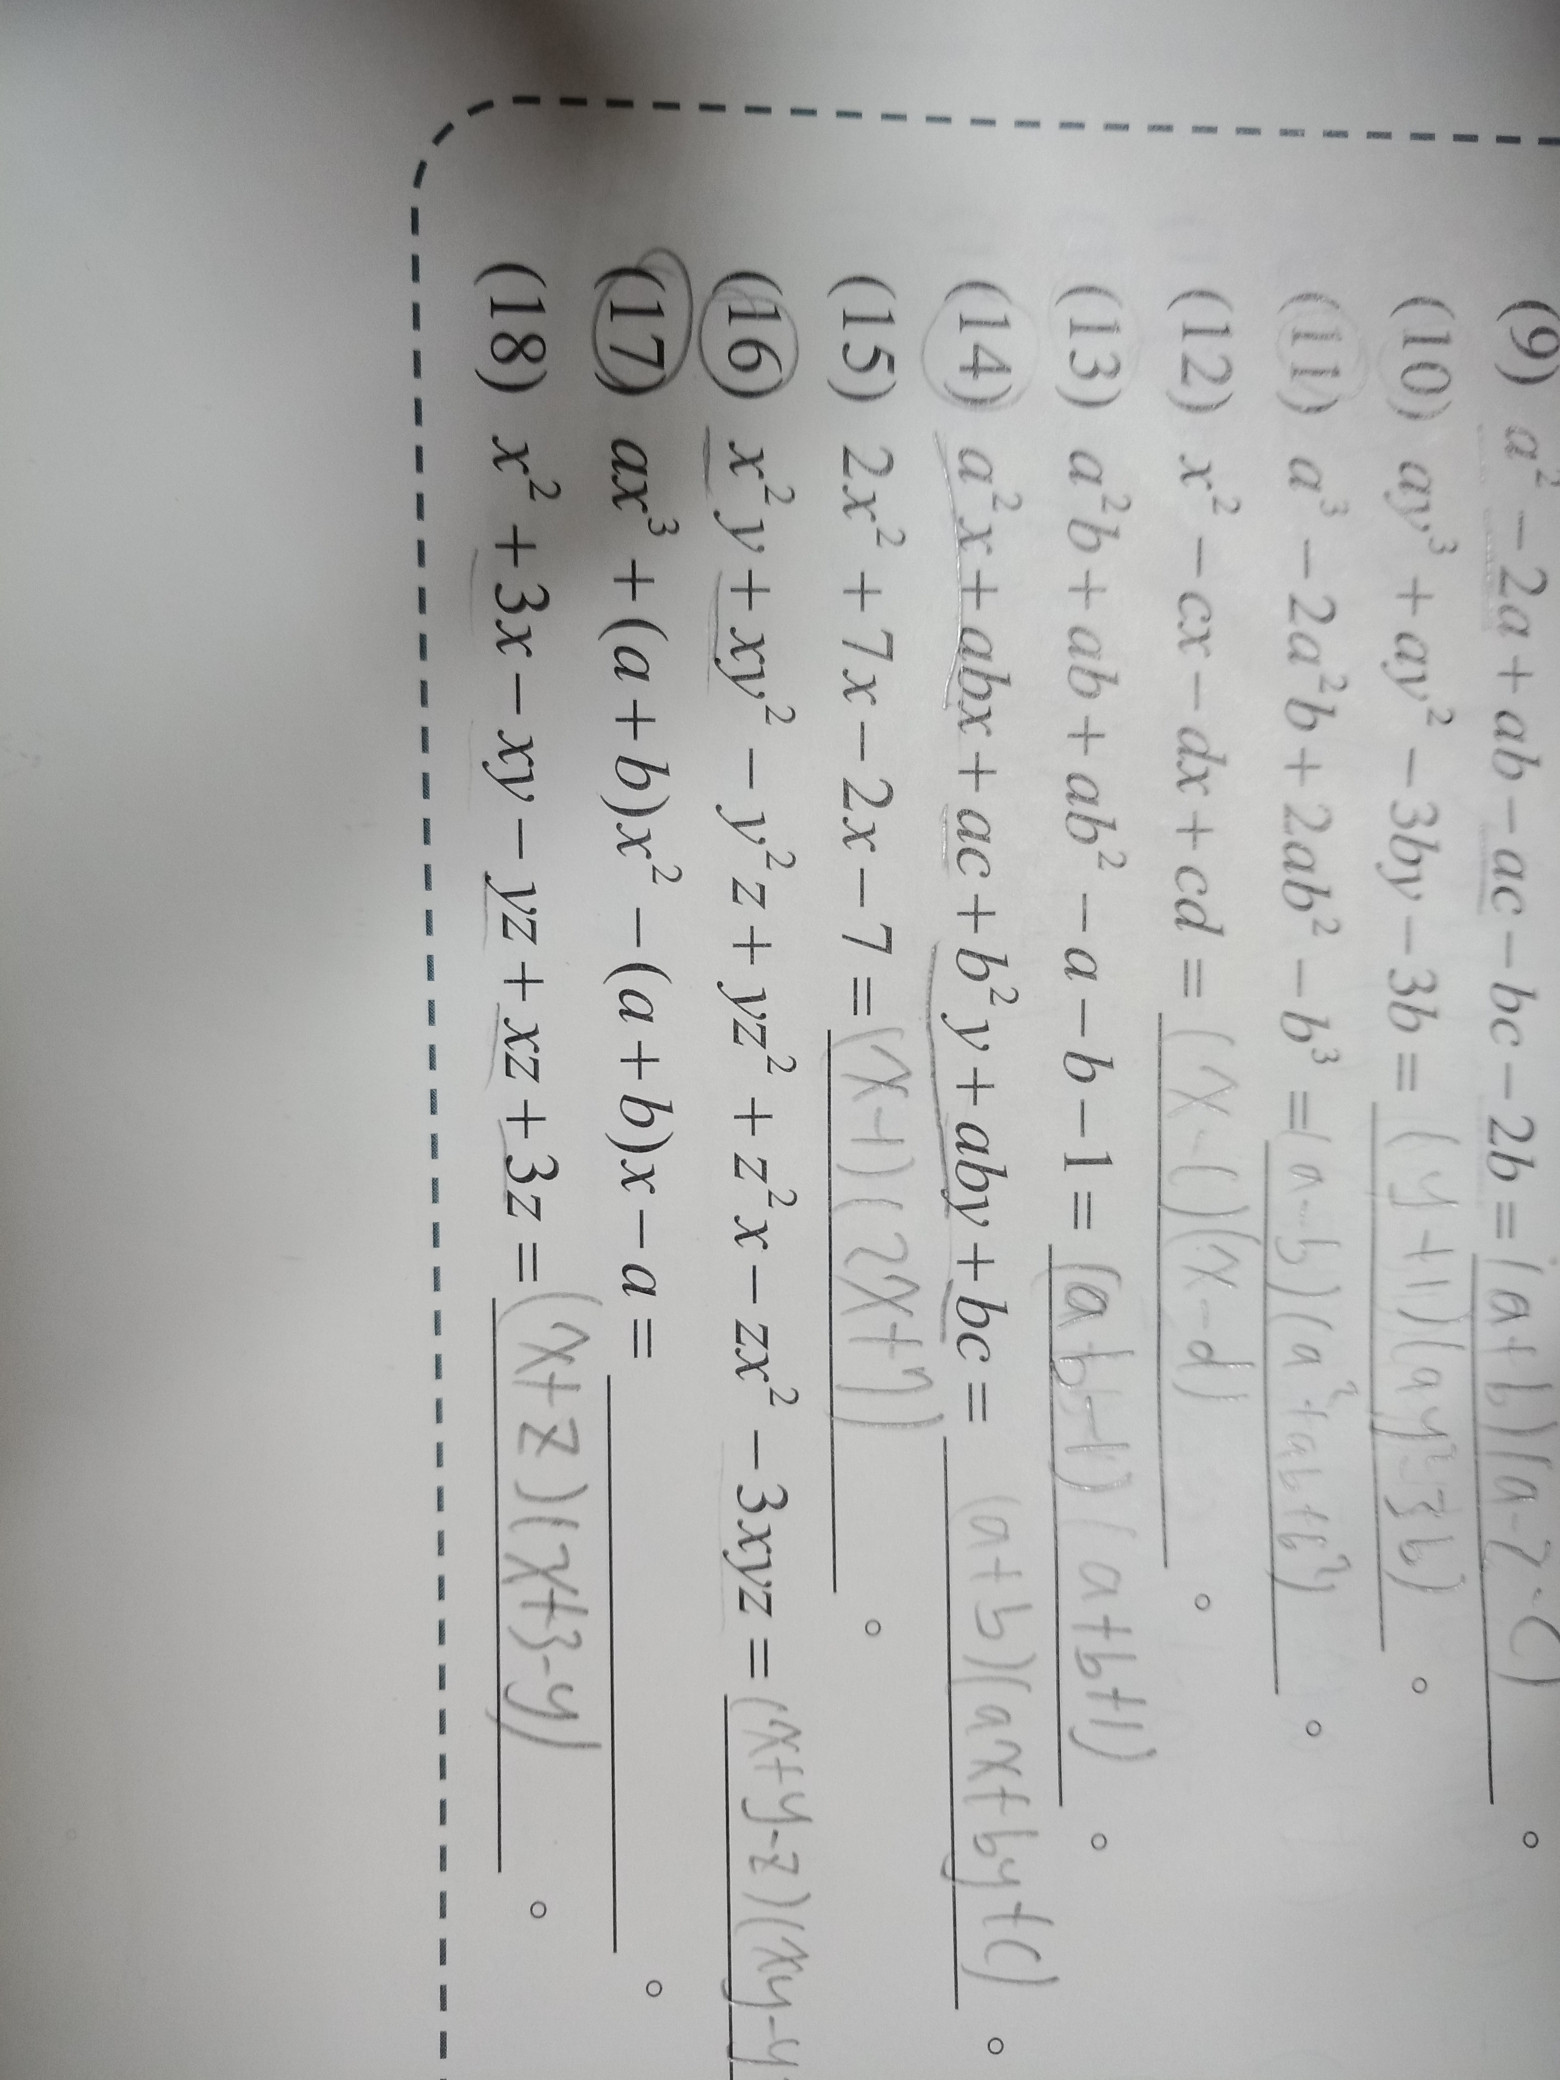 (9) a² − 2a + ab − ac − bc − 2b = (a+b)(a-2-c)。
(10) ay³ + ay² − 3by − 3b = (y+1)(ay²-3b)。
(11) a³ − 2a²b + 2ab² − b³ = (a-b)(a²+ab+b²)。
(12) x² − cx − dx + cd = (x-c)(x-d)。
(13) a²b + ab + ab² − a − b − 1 = (ab-1)(a+b+1)。
(14) a²x + abx + ac + b²y + aby + bc = (a+b)(ax+by+c)。
(15) 2x² + 7x − 2x − 7 = (x-1)(2x+7)。
(16) x²y + xy² − y²z + yz² + z²x − zx² − 3xyz = (x+y-z)(xy-y
(17) ax³ + (a + b)x² − (a + b)x − a = 。
(18) x² + 3x − xy − yz + xz + 3z = (x+z)(x+3-y)。